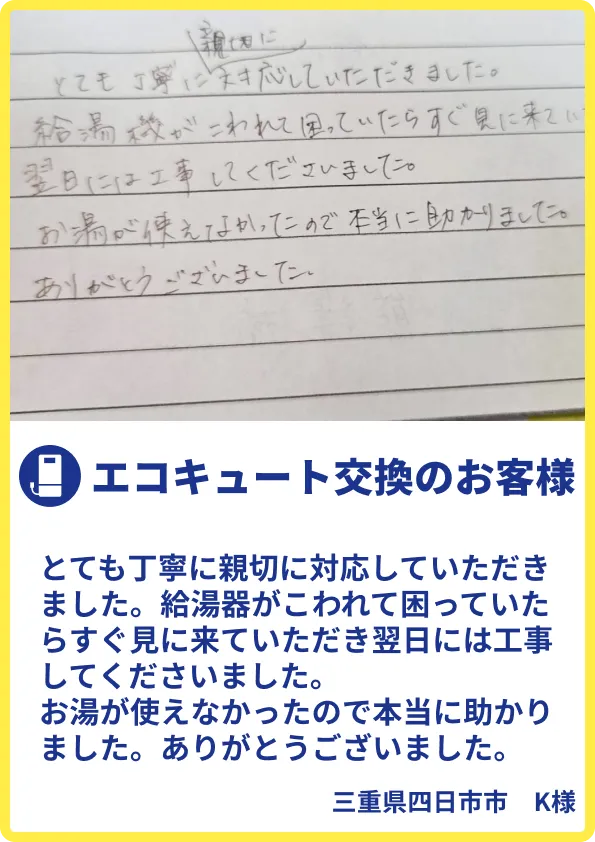 親切に
とても丁寧に対応していただきました。
給湯機がこわれて困っていたらすぐ見に来てい
翌日には工事してくださいました。
お湯が使えなかったので本当に助かりました。
ありがとうございました。
エコキュート交換のお客様
とても丁寧に親切に対応していただき
ました。給湯器がこわれて困っていた
らすぐ見に来ていただき翌日には工事
してくださいました。
お湯が使えなかったので本当に助かり
ました。ありがとうございました。
三重県四日市市 K様